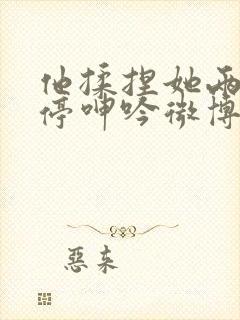 他揉捏她两
停呻吟微博
恶来